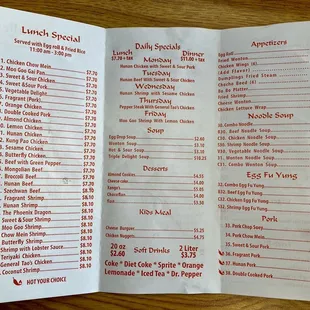 Lunch Special
Served with Egg roll & Fried Rice
11:00 am - 3:00 pm
1. Chicken Chow Mein $7.70
2. Moo Goo Gai Pan $7.70
3. Sweet & Sour Chicken $7.70
4. Sweet & Sour Pork $7.70
5. Vegetable Delight $7.70
6. Fragrant (Pork) $7.70
7. Orange Chicken $7.70
Double Cooked Pork $7.70
Almond Chicken $7.70
Lemon Chicken $7.70
Hunan Chicken $7.70
Kung Pao Chicken $7.70
Sesame Chicken $7.70
Butterfly Chicken $7.70
Beef with Green Pepper $7.70
Mongolian Beef $7.70
Broccoli Beef $7.70
Hunan Beef $8.10
Szechwan Beef $8.10
Fragrant Shrimp $8.10
Hunan Shrimp $8.10
The Phoenix Dragon $8.10
Sweet & Sour Shrimp $8.10
Moo Goo Shrimp $8.10
Chow Mein Shrimp $8.10
Butterfly Shrimp $8.10
Shrimp with Lobster Sauce $8.10
Teriyaki Chicken $8.10
General Tao's Chicken $8.10
Coconut Shrimp $8.10
HOT YOUR CHOICE
Daily Specials
Lunch Dinner
$7.70 + tax $11.00 + tax
Monday
Hunan Chicken with Sweet & Sour Pork
Tuesday
Hunan Beef with Sweet & Sour Chicken
Wednesday
Hunan Shrimp with Sesame Chicken
Thursday
Pepper Steak With General Tao's Chicken
Friday
Moo Goo Shrimp With Lemon Chicken
Soup
Egg Drop Soup $2.60
Wonton Soup
Hot & Sour Soup
Triple Delight Soup $10.25
Desserts
Almond Cookies
Cheese cake
Kids Meal
Cheese Burger
Chicken Nuggets
20 oz Soft Drinks 2 Liter
$2.60 $3.75
Coke * Diet Coke * Sprite * Orange
Lemonade * Iced Tea * Dr. Pepper
Appetizers
Egg Roll
Fried Wonton
Chicken Wings
(Add Flavor)
Dumplings Steam
Fried Shrimp
Cheese Wonton
Chicken Lettuce Wrap
Noodle Soup
Chicken Noodle Soup
Beef Noodle Soup
Shrimp Noodle Soup
Vegetable Noodle Soup
Wonton Noodle Soup
Combo Noodle Soup
Egg Fu Yung
Combo Egg Fu Yung
Chicken Egg Fu Yung
Beef Egg Fu Yung
Shrimp Egg Fu Yung
Pork
33. Pork Chop Suey
34. Pork Chow Mein
35. Sweet & Sour Pork
36. Fragrant Pork
37. Hunan Pork
38. Double Cooked Pork